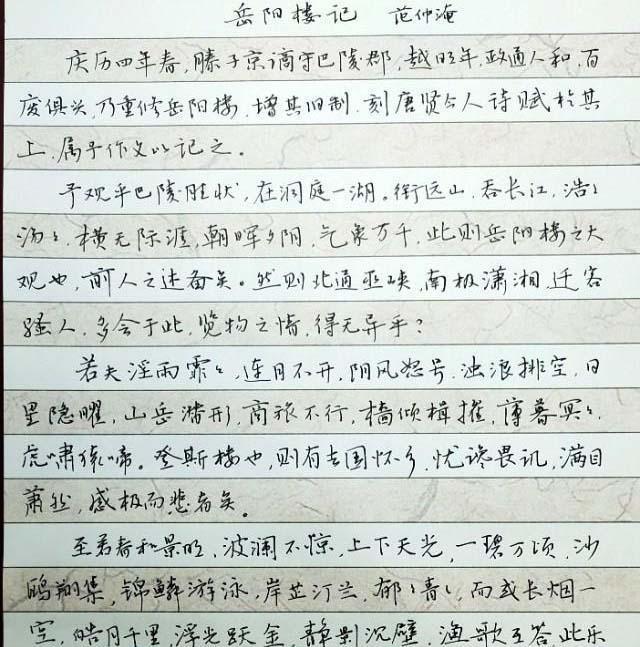 岳阳楼记 范仲淹
庆历四年春,滕子京谪守巴陵郡,越明年,政通人和,百
废俱兴,乃重修岳阳楼,增其旧制,刻唐贤今人诗赋于其
上,属予作文以记之。
予观乎巴陵胜状,在洞庭一湖。衔远山,吞长江,浩〻
汤〻,横无际涯,朝晖夕阴,气象万千,此则岳阳楼之大
观也,前人之述备矣。然则北通巫峡,南极潇湘,迁客
骚人,多会于此,览物之情,得无异乎?
若夫淫雨霏〻,连月不开,阴风怒号,浊浪排空,日
星隐曜,山岳潜形,商旅不行,樯倾楫摧,薄暮冥〻,
虎啸猿啼。登斯楼也,则有去国怀乡,忧谗畏讥,满目
萧然,感极而悲者矣。
至若春和景明,波澜不惊,上下天光,一碧万顷,沙
鸥翔集,锦鳞游泳,岸芷汀兰,郁〻青〻,而或长烟一
空,皓月千里,浮光跃金,静影沉璧,渔歌互答,此乐